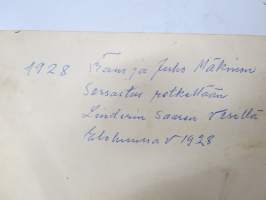 1928 Frans ja Juho Mäkinen
Sorsastus retkellään
Linderin saaren vesillä
Elokuussa v 1928